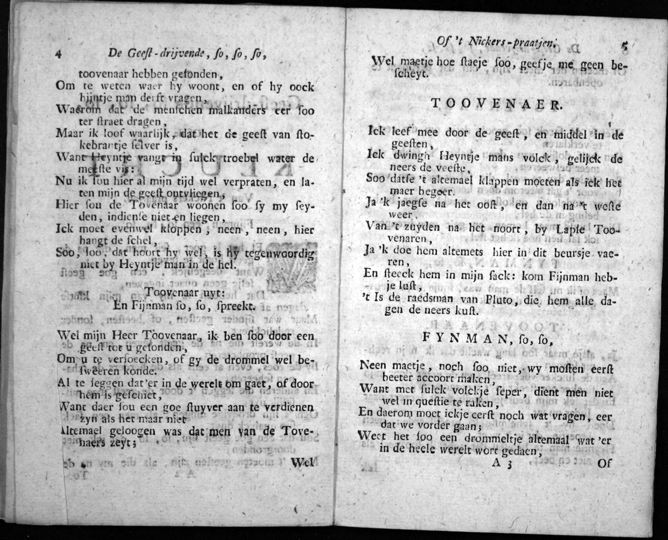 4 De Geest-drijvende, so, so, so,
toovenaar hebben gesonden,
Om te weten waer hy woont, en of hy oock
hijntje man derft vragen,
Waerom dat de menschen malkanders eer soo
ter straet dragen,
Maar ik loof waarlijk, dat het de geest van sto-
kebrantje selver is,
Want Heyntje vangt in sulck troebel water de
meeste vis:
Nu ik sou hier al mijn tijd wel verpraten, en la-
ten mijn de geest ontvliegen,
Hier sou de Tovenaar woonen soo sy my sey-
den, indiense niet en liegen,
Ick moet evenwel kloppen, neen, neen, hier
hangt de schel,
Soo, soo, dat hoort hy wel, is hy tegenwoordig
niet by Heyntje man in de hel.
Toovenaar uyt:
En Fijnman so, so, spreekt.
Wel mijn Heer Toovenaar, ik ben soo door een
geest tot u gesonden,
Om u te versoecken, of gy de drommel wel be-
sweeren konde.
Al te seggen dat'er in de werelt om gaet, of door
hem is geschiet,
Want daer sou een goe stuyver aan te verdienen
zyn als het maar niet
Altemael geloogen was dat men van de Tove-
naers zeyt;
Wel
Of 't Nickers-praatjen. 5
Wel maetje hoe staeje soo, geefje me geen be-
scheyt.
TOOVENAER.
Ick leef mee door de geest, en middel in de
geesten,
Iek dwingh Heyntje mans volck, gelijck de
neers de veeste,
Soo datse 't altemael klappen moeten als ick het
maer begeer.
Ja 'k jaegse na het oost, en dan na 't weste
weer,
Van 't zuyden na het noort, by Lapse Too-
venaren,
Ja 'k doe hem altemets hier in dit beursje vae-
ren,
En steeck hem in mijn sack: kom Fijnman heb-
je lust,
't Is de raedsman van Pluto, die hem alle da-
gen de neers kust.
FYNMAN, so, so,
Neen maetje, noch soo niet, wy mosten eerst
beeter accoort maken,
Want met sulck volckje seper, dient men niet
wel in questie te raken,
En daerom moet ickje eerst noch wat vragen, eer
dat we vorder gaan;
Weet het soo een drommeltje altemaal wat 'er
in de heele werelt wort gedaen,
A 3 Of